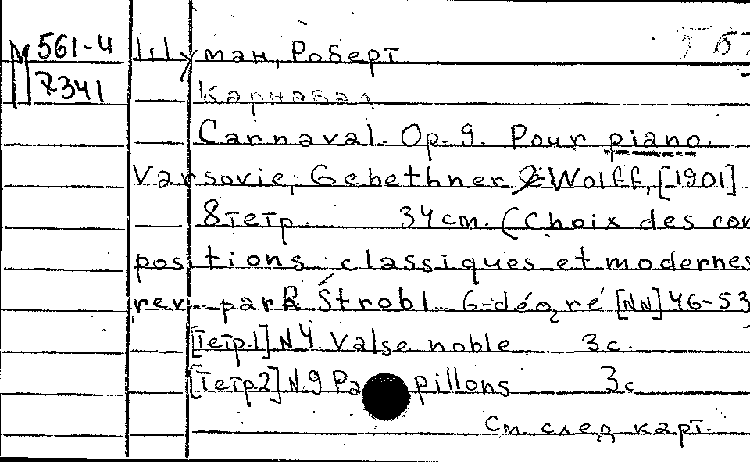 М 561-4 Шуман, Роберт
R341 Карнавал
Carnaval. Op. 9. Pour piano.
Varsovie, Gebethner & Wolff, [1901].
8 тетр. 34 см. (Choix des com
positions classiques et modernes
rev. par R. Štrobl. 6-degré [NN] 46-53
[Тетр.1] N.4 Valse noble 3 с.
[Тетр.2] N.9 Papillons 3 с
См след карт.